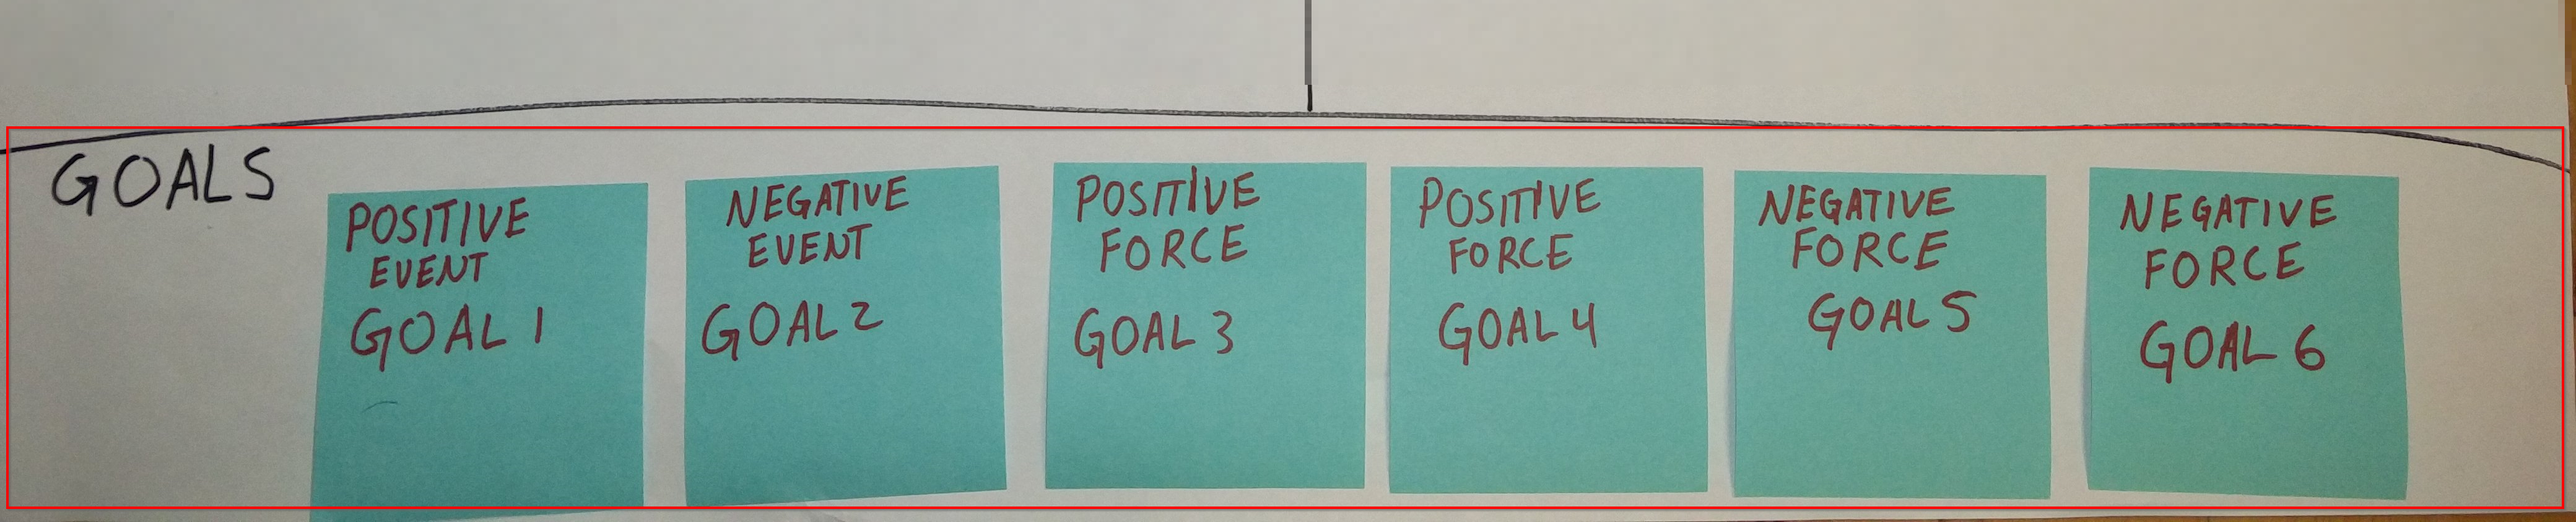 GOALS
POSITIVE
EVENT
GOAL 1
NEGATIVE
EVENT
GOAL 2
POSITIVE
FORCE
GOAL 3
POSITIVE
FORCE
GOAL 4
NEGATIVE
FORCE
GOAL 5
NEGATIVE
FORCE
GOAL 6